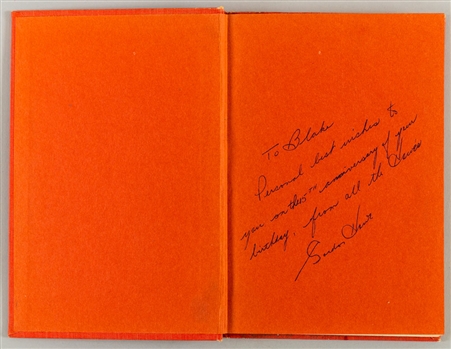 To Blake
Personal best wishes to
you on the 5th anniversary of your
birthday, from all the Howes
Gordon Howe